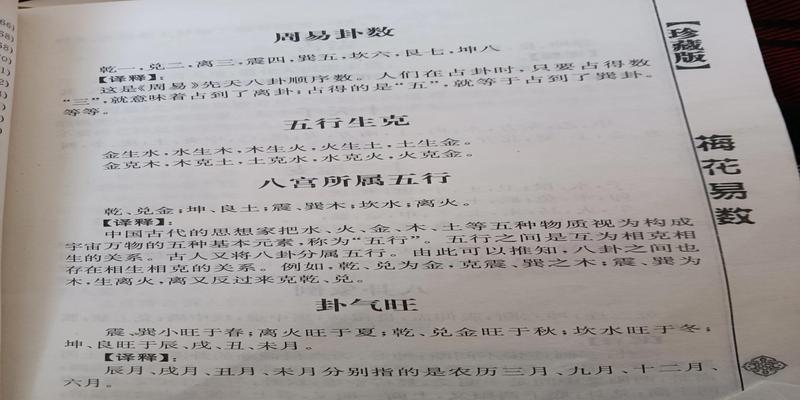 周易卦数
乾一，兑二，离三，震四，巽五，坎六，艮七，坤八
【译释】：
这是《周易》先天八卦顺序数。人们在占卦时，只要占得数
“三”，就意味着占到了离卦；占得的是“五”，就等于占到了巽卦。
等等。
五行生克
金生水，水生木，木生火，火生土，土生金。
金克木，木克土，土克水，水克火，火克金。
八宫所属五行
乾、兑金；坤、艮土；震、巽木；坎水；离火。
【译释】：
中国古代的思想家把水、火、金、木、土等五种物质视为构成
宇宙万物的五种基本元素，称为“五行”。五行之间是互为相克相
生的关系。古人又将八卦分属五行。由此可以推知，八卦之间也
存在相生相克的关系。例如，乾、兑为金，克震、巽之木；震、巽为
木，生离火，离又反过来克乾、兑。
卦气旺
震、巽小旺于春；离火旺于夏；乾、兑金旺于秋；坎水旺于冬；
坤、艮旺于辰、戌、丑、未月。
【译释】：
辰月、戌月、丑月、未月分别指的是农历三月、九月、十二月、
六月。
【珍藏版】
梅花易数